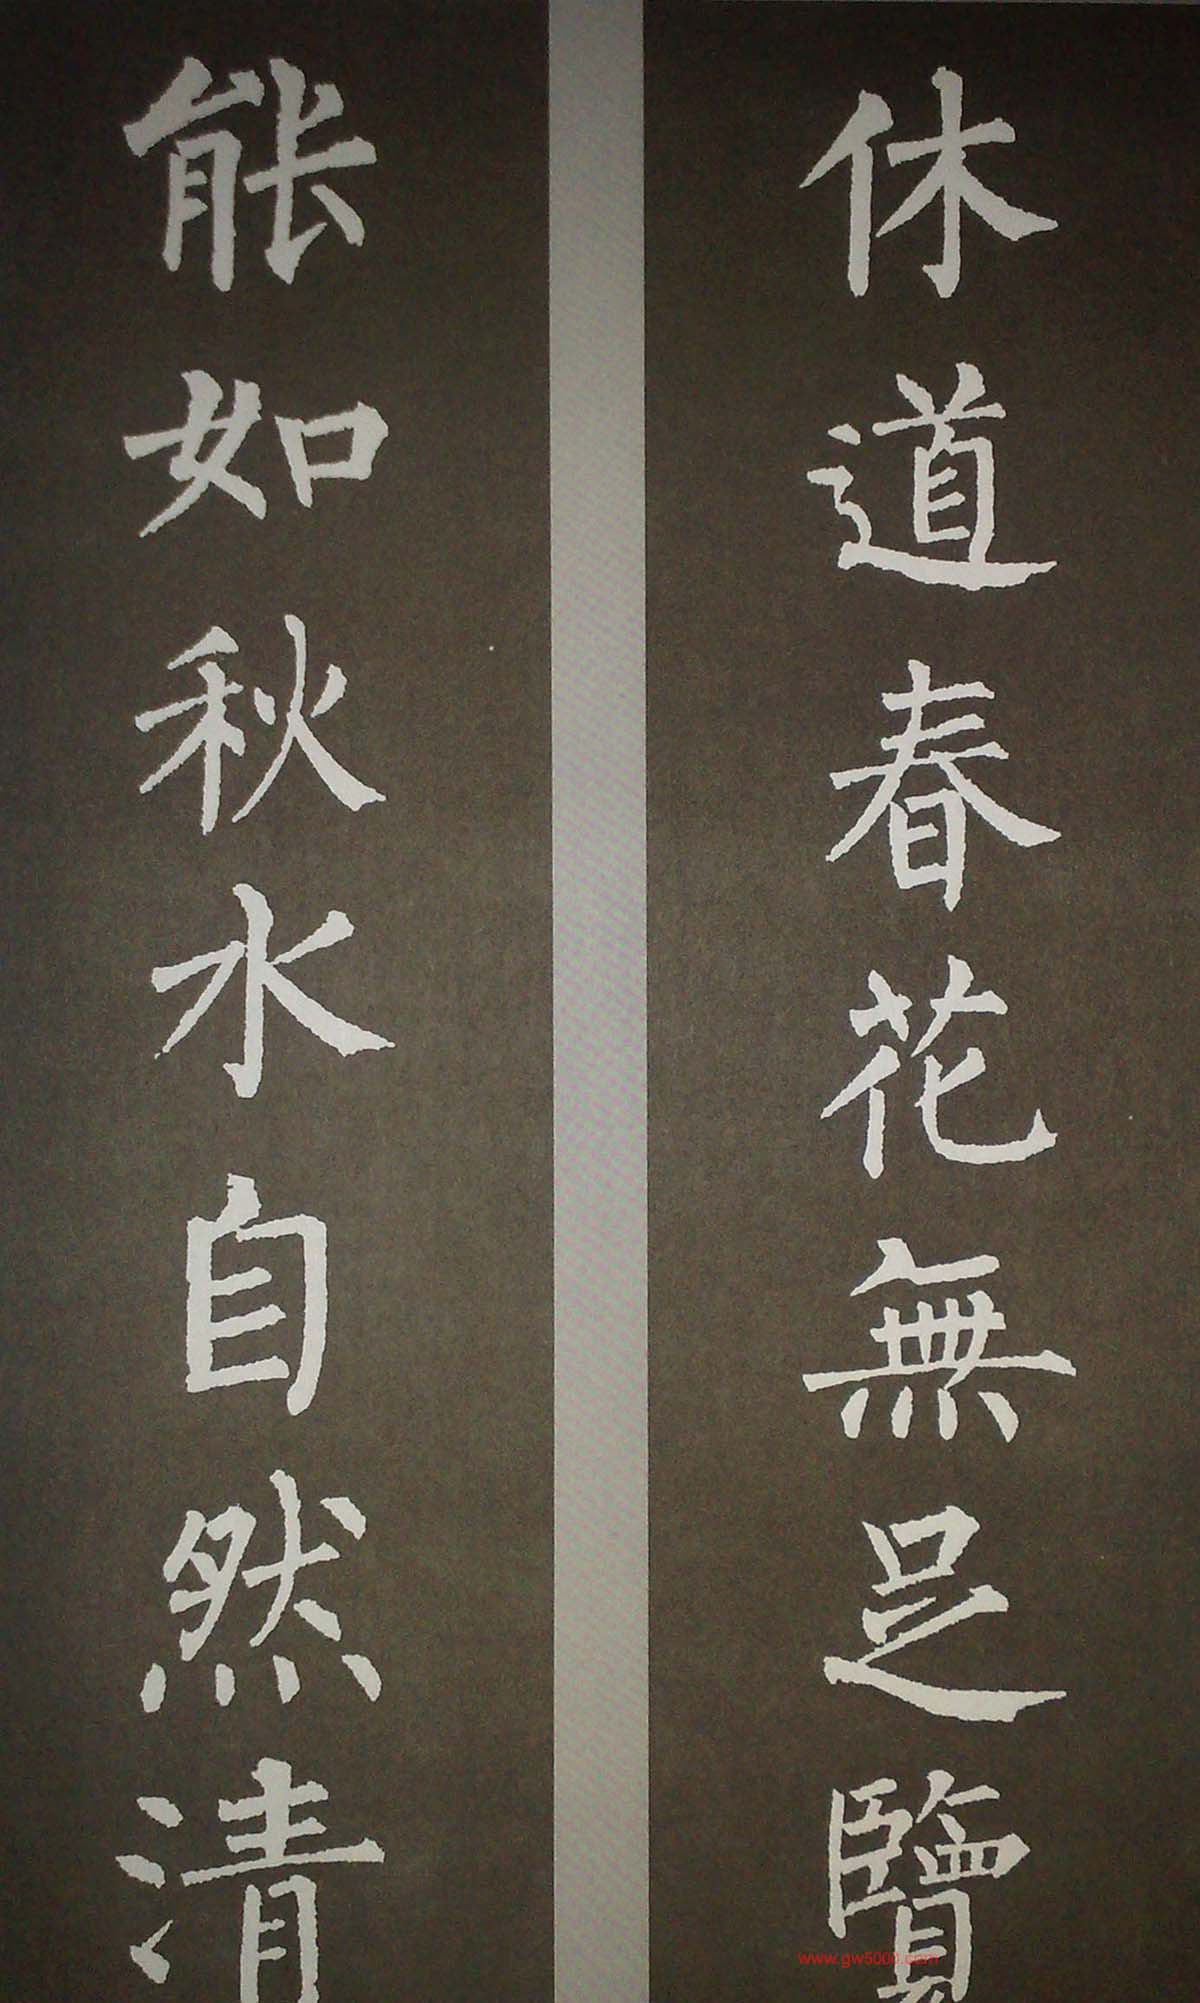 休道春花無足覽
能如秋水自然清
www.gw5000.com